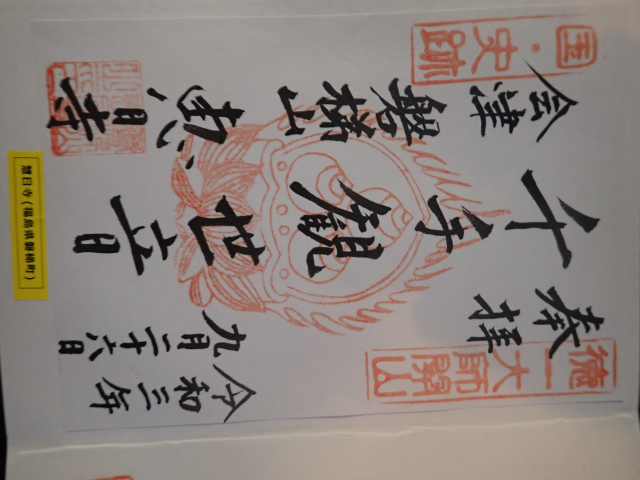 徳一大師開山
奉拝
令和三年
九月二十六日
千手観世音
国・史跡
会津
磐梯山
恵日寺
慧日寺(福島県磐梯町)